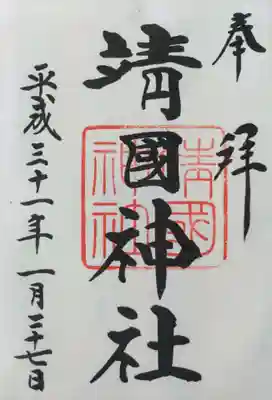 奉拝
靖國神社
靖國神社
平成三十一年一月二十七日